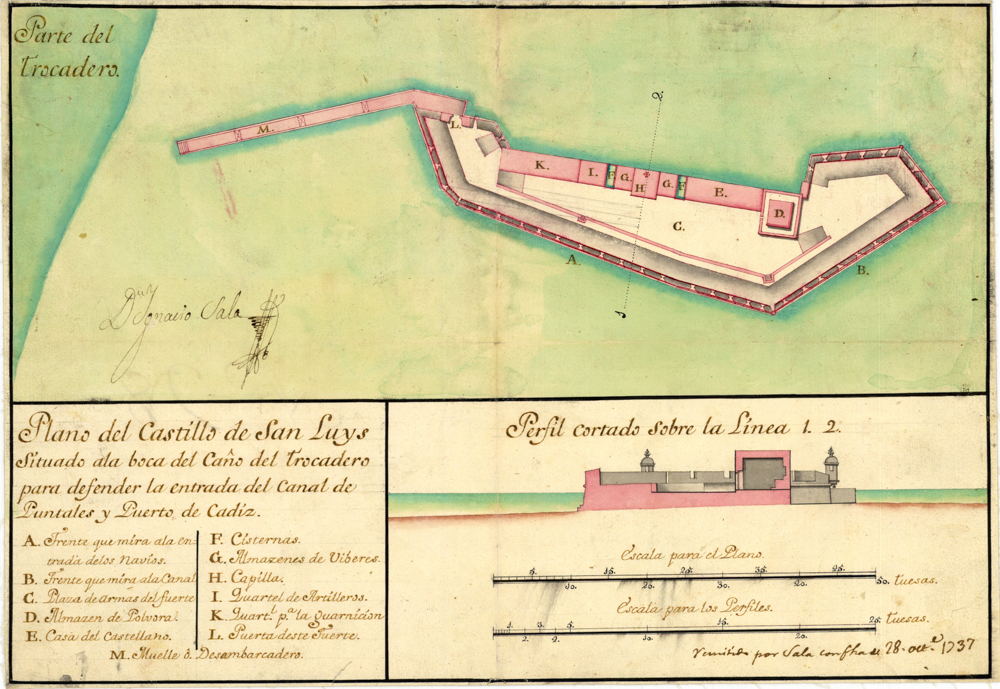 Parte del
Trocadero.
2.
M.
L.
K.
I.
F
G.
H
G.
F
E.
D.
C.
A.
B.
1.
Dn Ignacio Sala
Plano del Castillo de San Luys
Situado ala boca del Caño del Trocadero
para defender la entrada del Canal de
Puntales y Puerto de Cadiz.
A. Frente que mira ala en-
trada delos Navios.
B. Frente que mira ala Canal
C. Plaza de armas del fuerte
D. Almazen de Polvora.
E. Casa del Castellano.
F. Cisternas.
G. Almazenes de Viberes.
H. Capilla.
I. Quartel de Artilleros.
K. Quart.l p.a la guarnicion
L. Puerta deste Fuerte.
M. Muelle ô Desembarcadero.
Perfil cortado sobre la Línea 1. 2.
Escala para el Plano.
5. 15. 25. 35. 25.
10. 20. 30. 40. 50. tuesas.
Escala para los Perfiles.
1. 3. 5. 15. 25. tuesas.
2. 4. 10. 20.
remitido por Sala con fha de 28. oct.e 1737